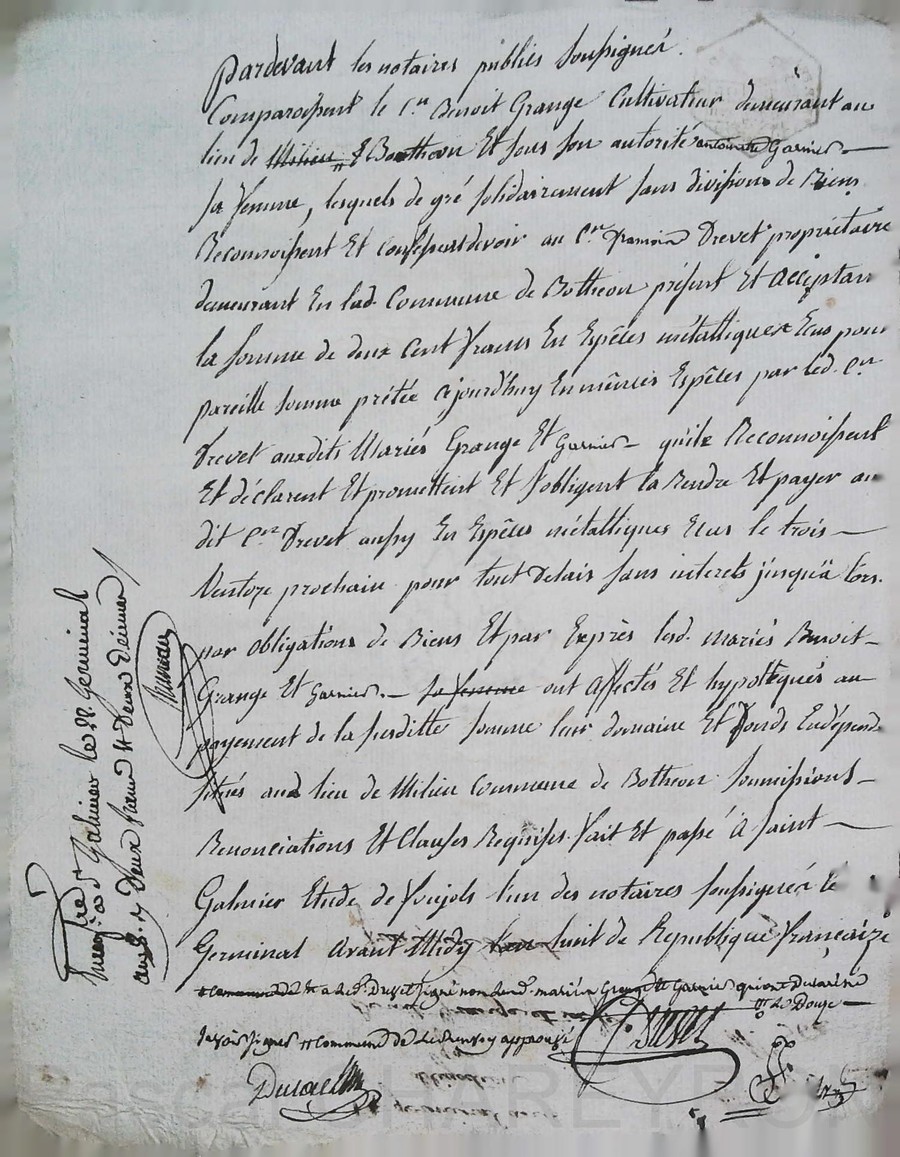 pardevant les notaires publics soussignés.
Comparoissent le C.en Benoit Grange Cultivateur demeurant au
lieu de Milieu Boutheon Et sous son autorité antoinette Garnier
sa femme, lesquels de gré solidairement sans division de Biens
Reconnoissent Et confessent devoir au C.en Drevet propriétaire
demeurant En lad. Commune de Botheon présent Et acceptan
la somme de deux Cent francs En Espêces métalliques Ecus pour
pareille somme prétée ajourd'huy En mêmes Espêces par led. C.en
Drevet auxdits Mariés Grange Et Garnier qu'ils Reconnoissent
Et déclarent Et promettent Et s'obligent la Rendre Et payer au
dit C.en Drevet aussy En Espêces métalliques Ecus le trois
Ventoze prochain pour tout Delais sans interets jusqu'a lors.
par obligations de Biens Et par Exprès lesd. mariés Benoit
Grange Et Garnier sa femme ont affectés Et hypotéqués au
payement de la susditte somme leur domaine Et fonds En dépend
situés aud lieu de Milieu Commune de Botheon soumissions
Renonciations Et Clauses Requises. fait Et passé à Saint
Galmier Etude de l'un des notaires soussignés le
Germinal avant Midy huit de Republique françaize
Et a le C.en Drevet signé non lesd. mariés Grange Et Garnier qui ont declaré ne
savoir signer Commune de approuvé
le Douze
Drevet
Duroel
St Galmier le 22 Germinal
an 8. Deux francs Deux Decimes